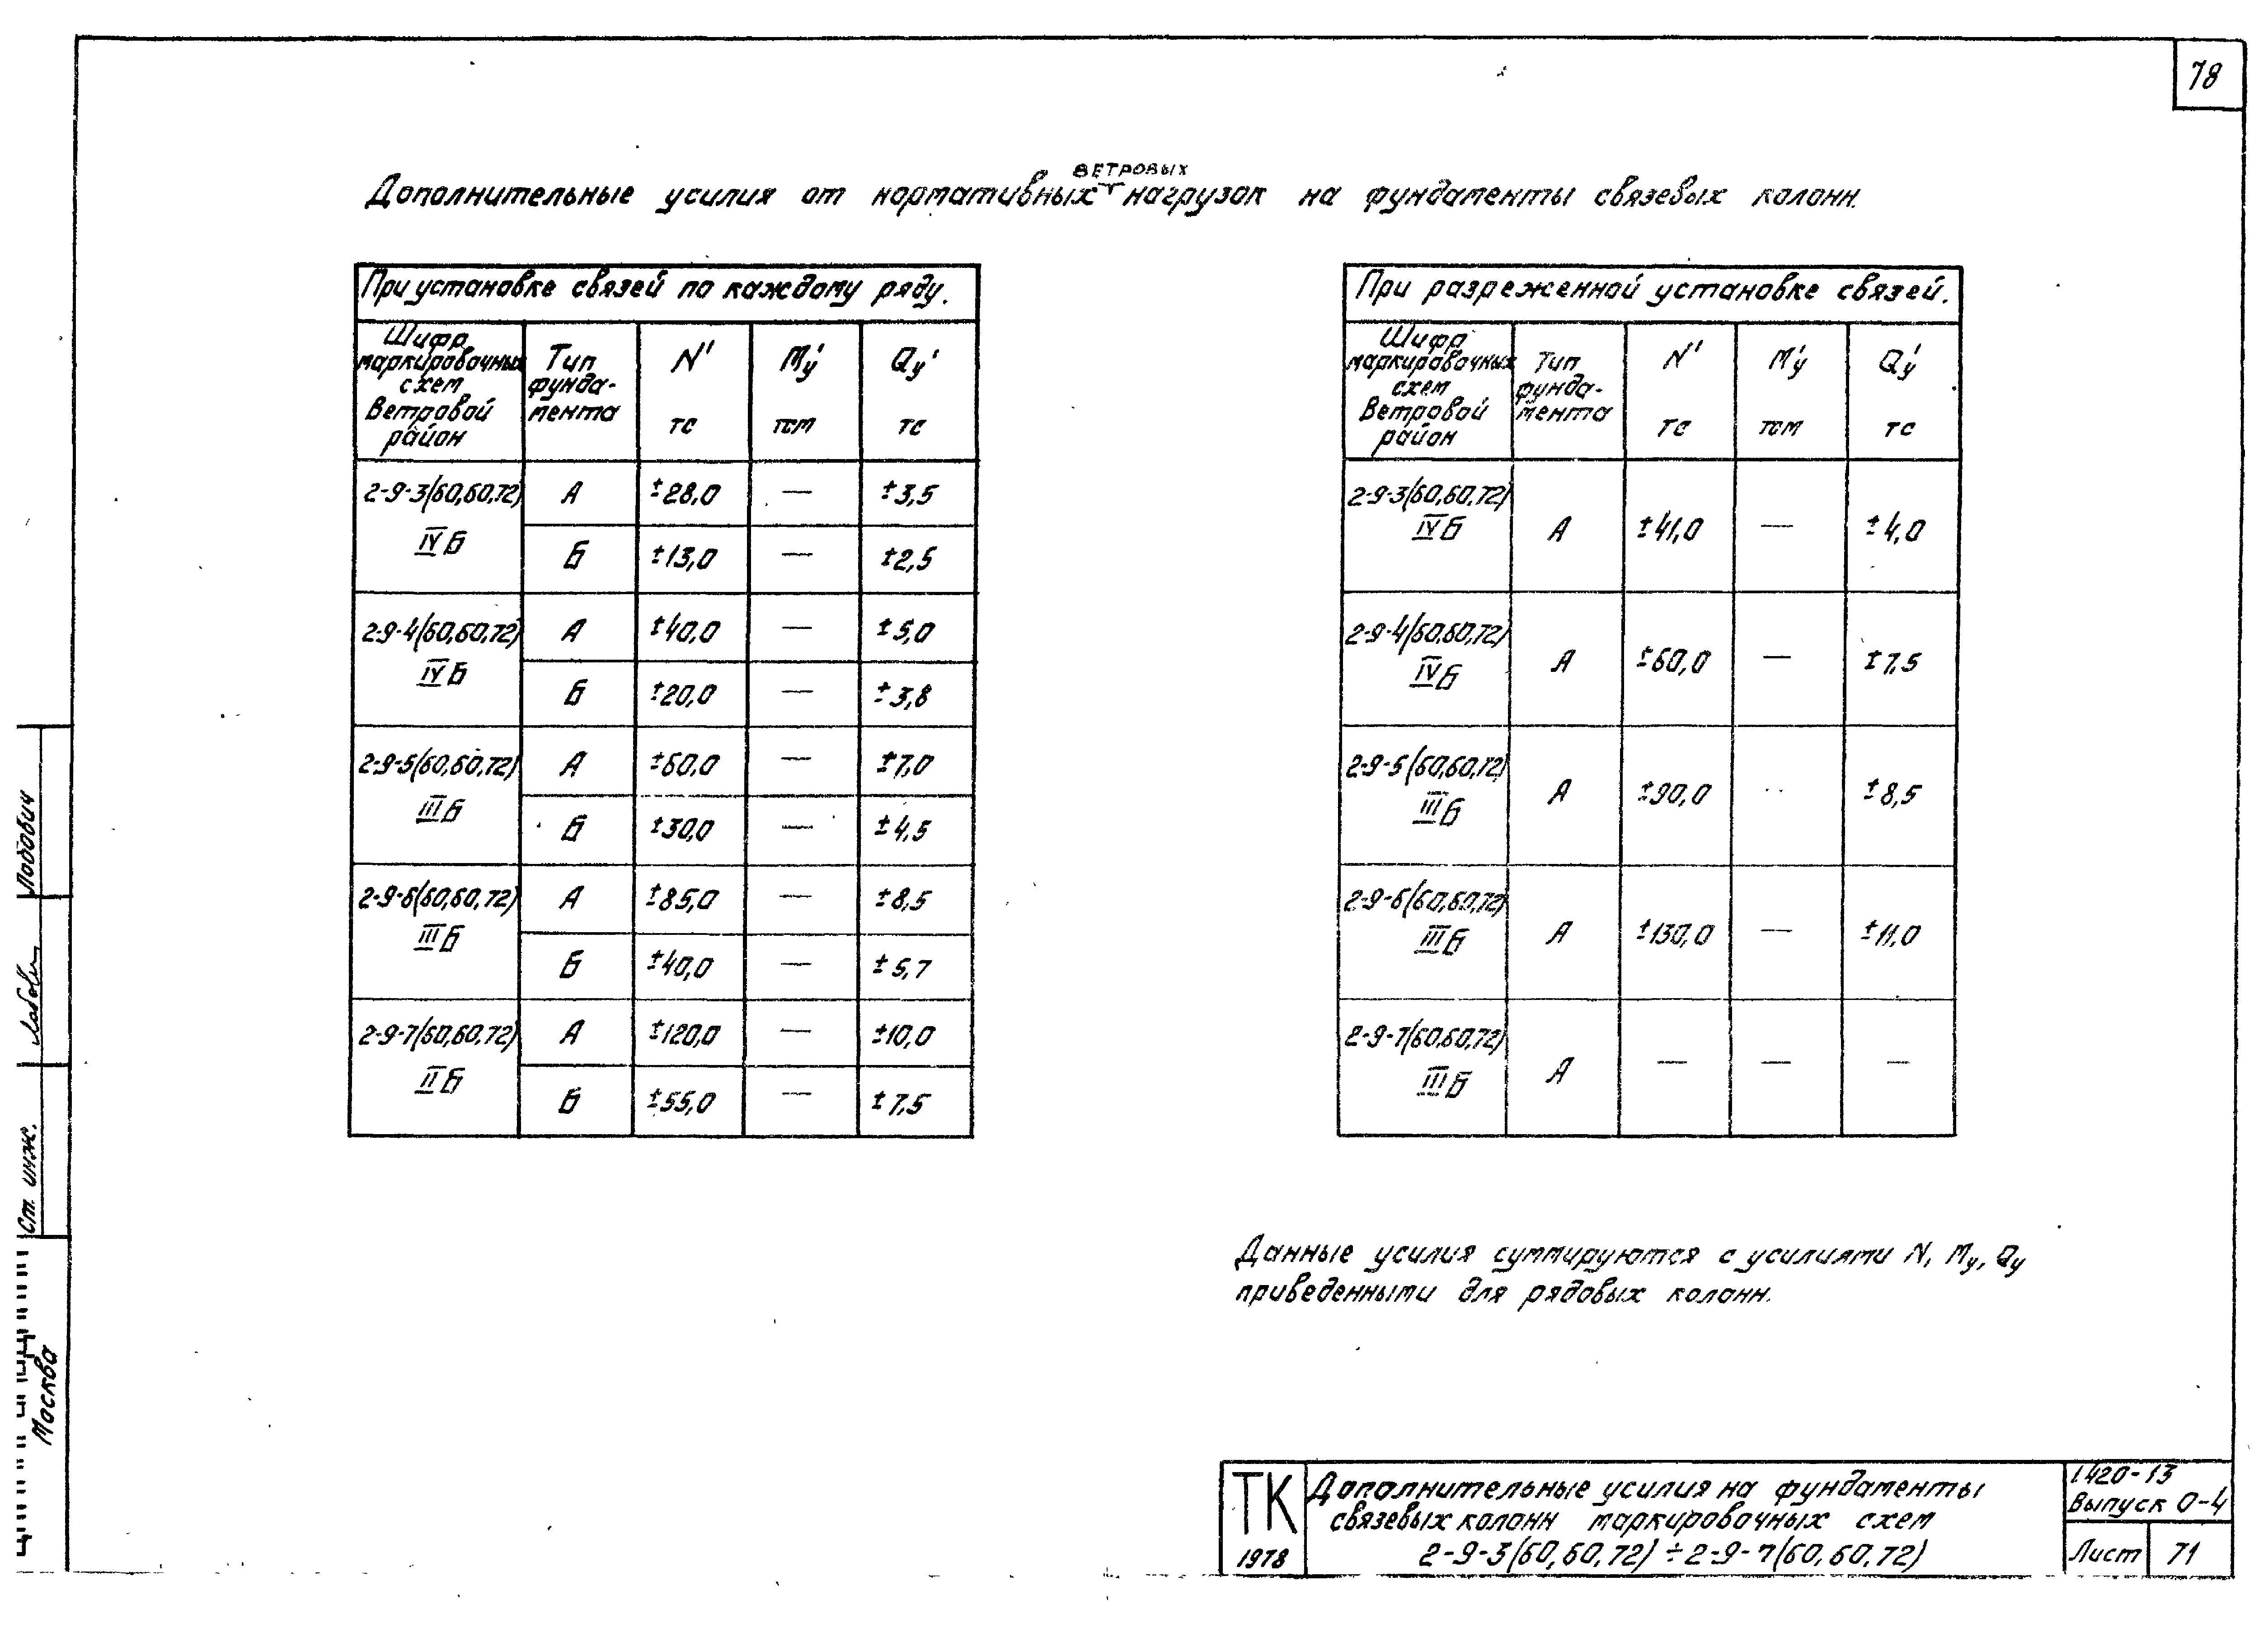 78
ветровых
Дополнительные усилия от нормативных нагрузок на фундаменты связевых колонн.
При установке связей по каждому ряду.
Шифр маркировочных схем Ветровой район | Тип фунда-мента | N' тс | M'у тсм | Qу' тс
2-9-3(60,60,72) IVБ | А | ±28,0 | — | ±3,5
Б | ±13,0 | — | ±2,5
2-9-4(60,60,72) IVБ | А | ±40,0 | — | ±5,0
Б | ±20,0 | — | ±3,8
2-9-5(60,60,72) IIIБ | А | ±60,0 | — | ±7,0
Б | ±30,0 | — | ±4,5
2-9-6(60,60,72) IIIБ | А | ±85,0 | — | ±8,5
Б | ±40,0 | — | ±5,7
2-9-7(60,60,72) IIБ | А | ±120,0 | — | ±10,0
Б | ±55,0 | — | ±7,5
При разреженной установке связей.
Шифр маркировочных схем Ветровой район | Тип фунда-мента | N' тс | M'у тсм | Q'у тс
2-9-3(60,60,72) IVБ | А | ±41,0 | — | ±4,0
2-9-4(60,60,72) IVБ | А | ±60,0 | — | ±7,5
2-9-5(60,60,72) IIIБ | А | ±90,0 | | ±8,5
2-9-6(60,60,72) IIIБ | А | ±130,0 | — | ±11,0
2-9-7(60,60,72) IIIБ | А | — | — | —
Данные усилия суммируются с усилиями N, Mу, Qу
приведенными для рядовых колонн.
Лобович
Ст. инж.
Москва
ТК
1978
Дополнительные усилия на фундаменты
связевых колонн маркировочных схем
2-9-3(60,60,72)÷2-9-7(60,60,72)
1420-13
Выпуск 0-4
Лист 71